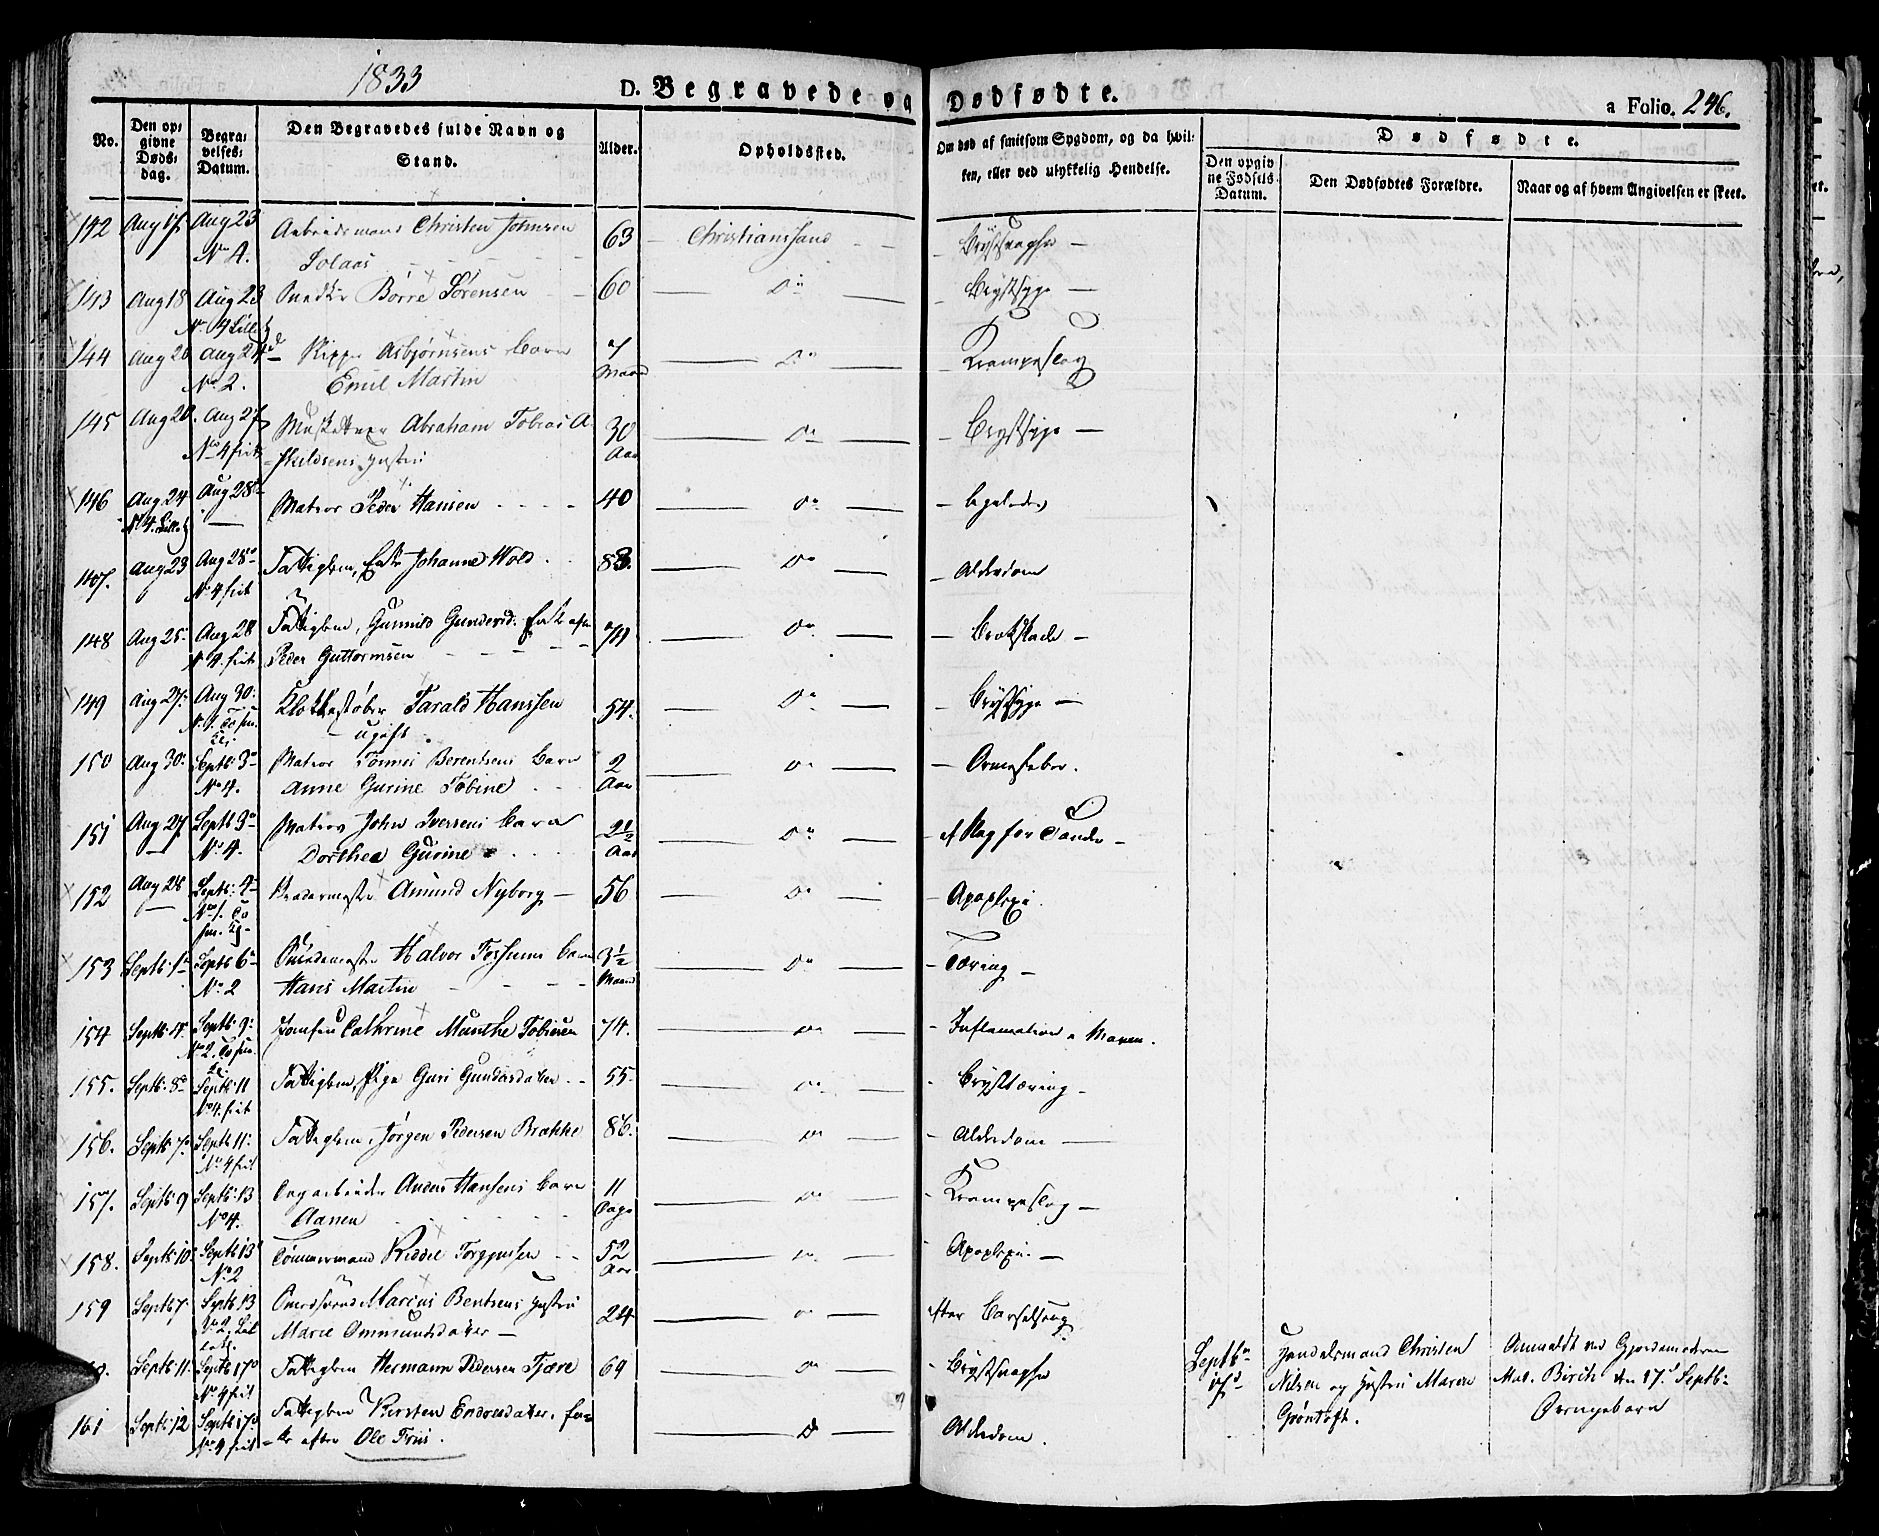 1833
D. Begravede og Dødfødte.
a Folio. 246.
No.
Den opgivne Dødsdag.
Begravelses-Datum.
Den Begravedes fulde Navn og Stand.
Alder.
Opholdssted.
Om død af smitsom Sygdom, og da hvilken, eller ved ulykkelig Hendelse.
Dødfødte.
Den opgivne Fødsels Datum.
Den Dødfødtes Forældre.
Naar og af hvem Angivelsen er skeet.
142 Aug 17 Aug 23 Arbeidsmand Christen Johnsen 63 Christianssand Brystsvaghed
No 4. Solaas
143 Aug 18 Aug 23 Snedker Børre Sørensen 60 Do Brystsyge
No. 4 Lille
144 Aug 20 Aug 24 Skipper Asbjørnsens Barn 7 Do Krampeslag
No 2. Emil Martin Maand
145 Aug 20. Aug 27 Musketeer Abraham Tobias A 30 Do Brystsyge
No 4 frit skildsens Hustru Aar
146 Aug 24 Aug 28 Matros Peder Hansen 40 Do
No 4. Lille
147. Aug 23 Aug 28 Fattiglem, Enke Johanne Wold 83. Do Alderdom
No 4 frit
148 Aug 25 Aug 28 Fattiglem, Gunnild Gundersd. Enke efter Do Brokskade
No 4. frit Peder Guttormsen
149 Aug 27 Aug 30 Klokkestøber Tarald Hanssen 54. Do Brystsyge
ugift
150 Aug 30 Septb: 3 Matros Tønnes Berentsens Barn 2 Do Ormefeber.
No 4. Anne Gurine Tobine Aar
151 Aug 27 Septb 3 Matros John Iversens Barn 2½ Do af Slag for Tænder
No 4. Dorthea Gurine Aar
152 Aug 28 Septb: 4 Amund Nyborg 56 Do Apoplexi.
153 Septb: 1 Septb 6 Halvor Fossums Barn 3½ Do Tæring
No 2 Hans Martin Maand
154 Septb: 4 Septb: 9 Jomfru Cathrine Munthe Tobiesen 74. Do Inflamation i Maven.
155. Septb: 8 Septb: 11 Fattiglem, Pige Guri Gundersdatter 55. Do Brysttæring
No 4. frit
156. Septb: 7 Septb 11 Fattiglem, Jørgen Pedersen Brække 86. Do Alderdom
No 4 frit
157. Septb: 9 Septb: 13 Dagarbeider Anders Hansens Barn 11 Do Krampeslag
No 4. Aanen Dage
158. Septb: 10 Septb 13 Tømmermand Kiddel Torgjusen 52 Do Apoplexi.
No 2 Aar
159 Septb 7 Septb 13 Marcus Bentsens Hustru 24 Do efter Barselseng
No 2. Marie Ommundsdatter
Septb: 11 Septb 17 Fattiglem Hermann Pedersen Tjære 69 Do Brystsvaghed
No 4 frit
Septbr 17 Handelsmand Christen Nilsen og Hustru Maren Grøntoft.
Anmeldt ved Gjordemoderen Mad. Birch den 17 Septb: Drengebarn
161 Septb: 12 Septb: 17 Fattiglem Kirsten Endresdatter, En- Do Alderdom.
No 4 frit ke efter Ole Friis.